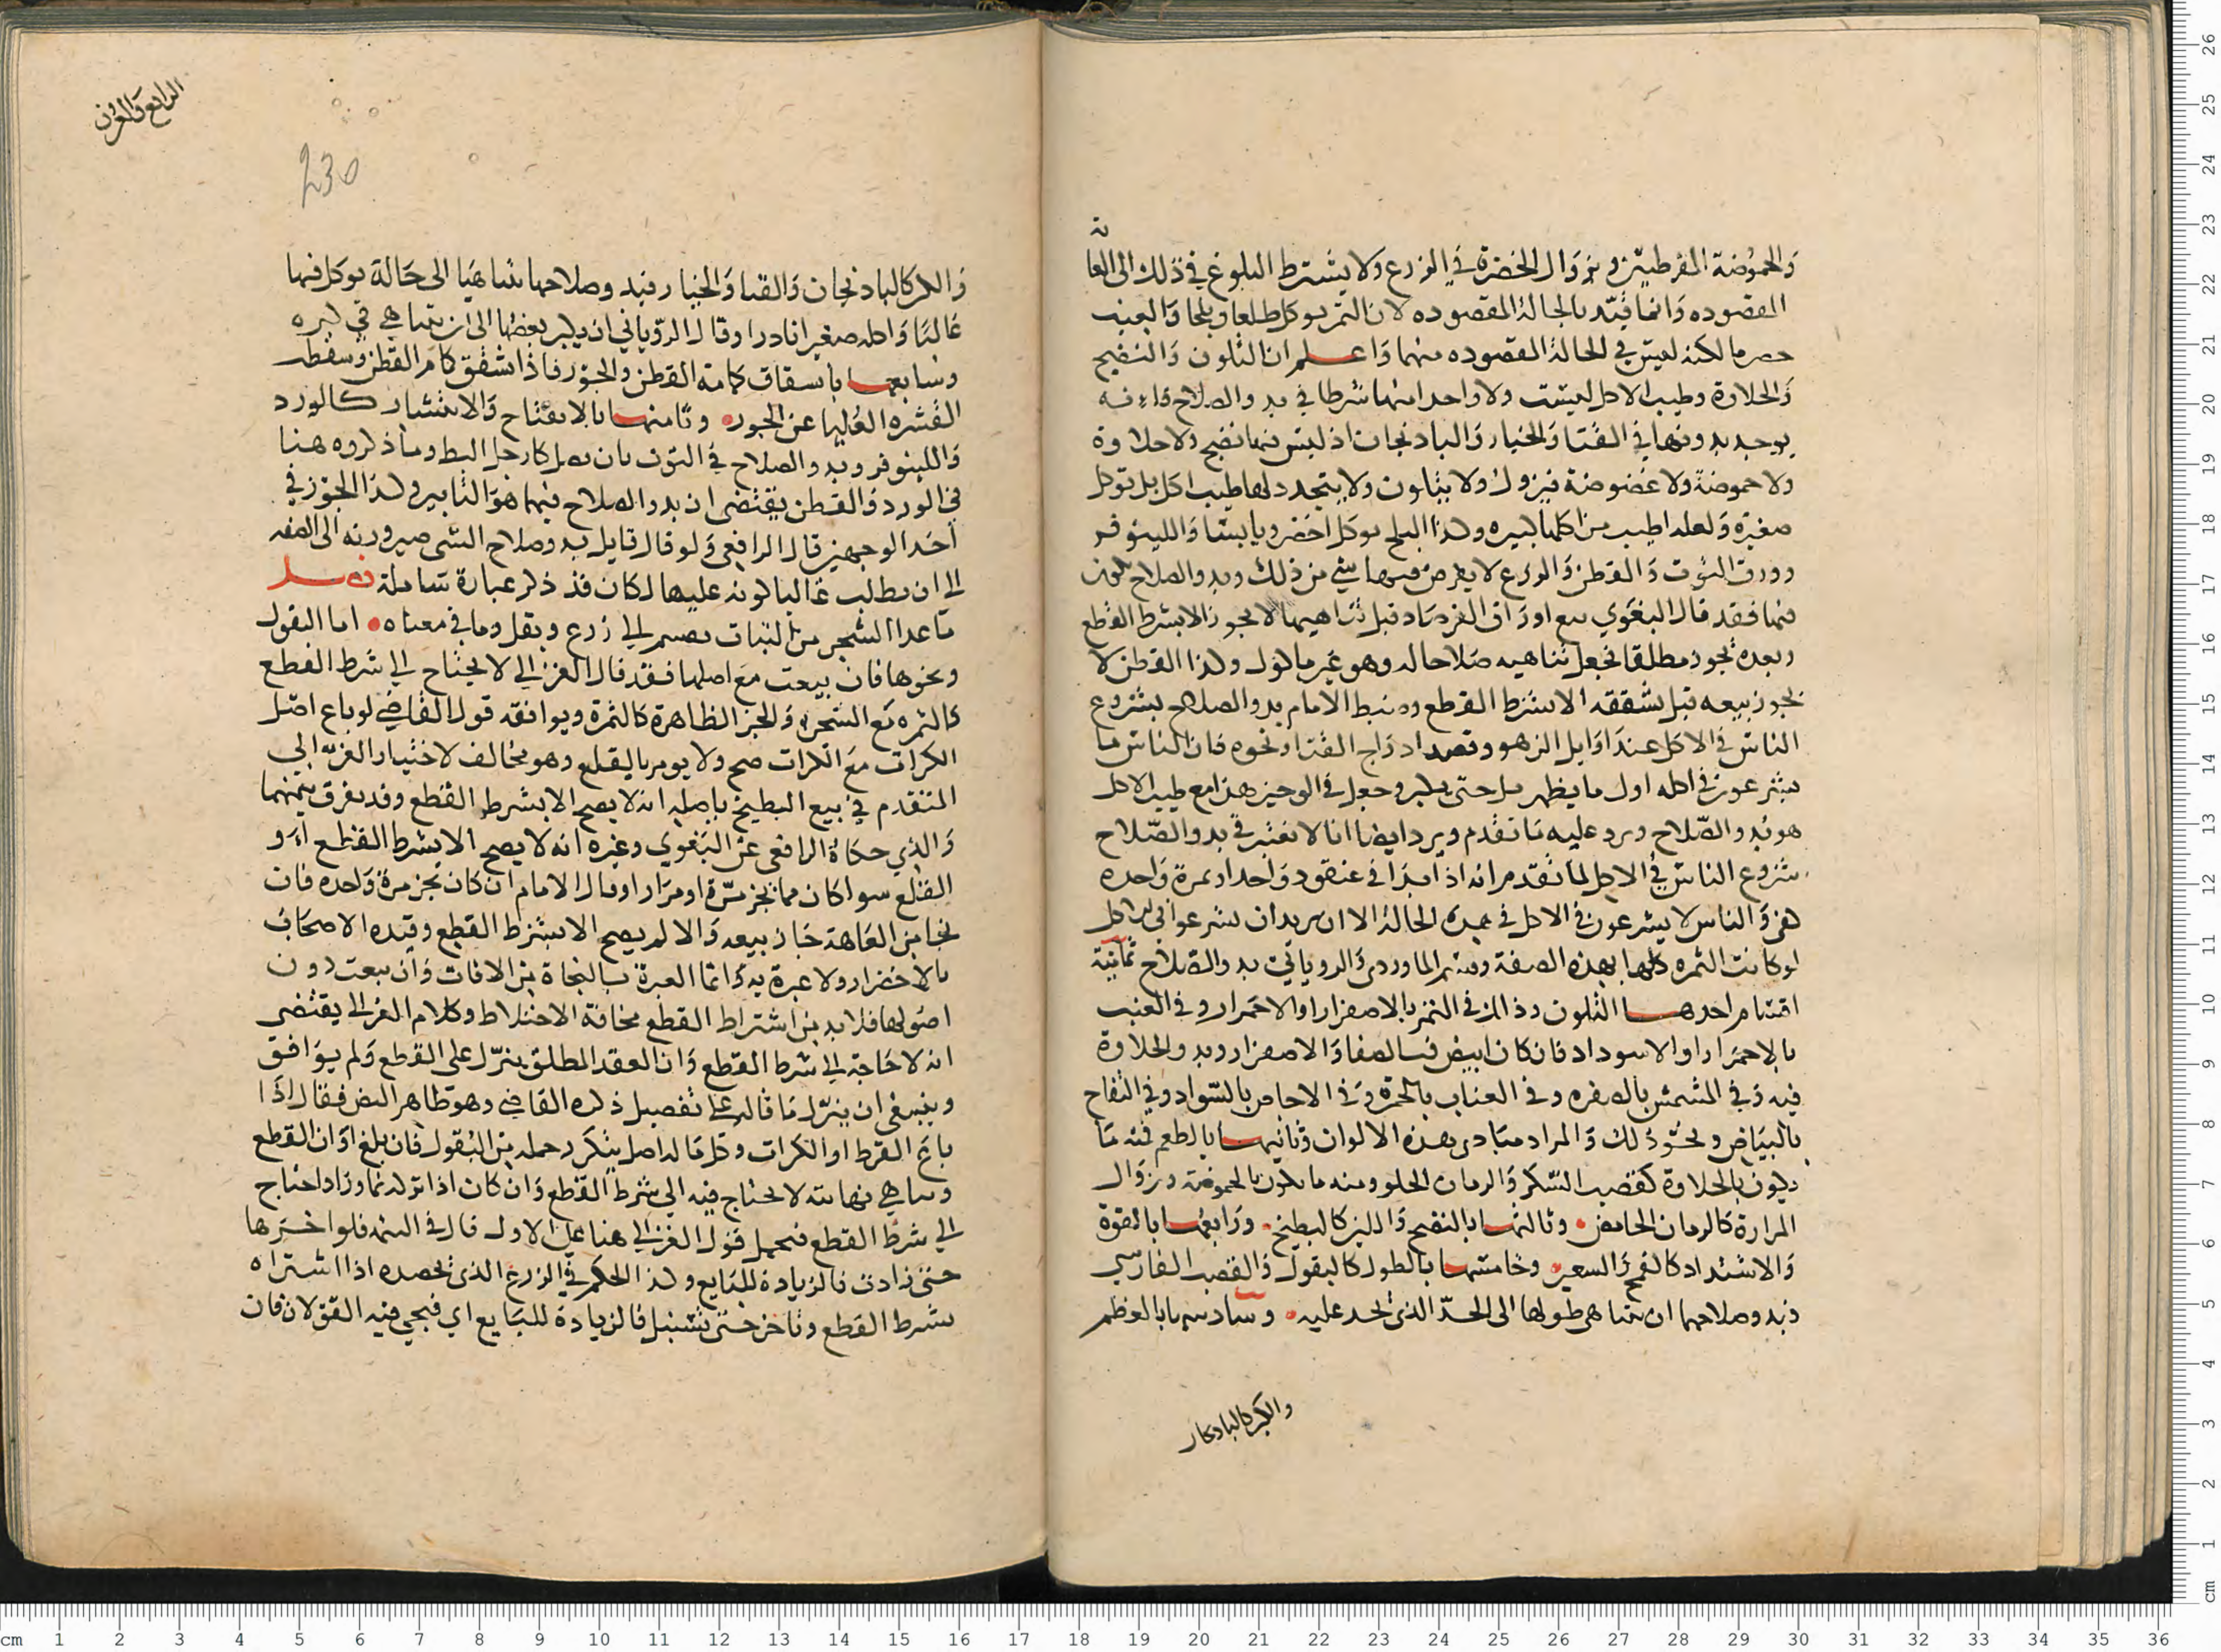 والحموضة المفرطتين وبزوال الخضرة في الزرع ولا يشترط البلوغ في ذلك الى الغاية
المقصوده وانما قيد بالحالة المقصوده لان الثمر يوكل طلعا وبلحا والعنب
حصرما لكنه ليس في الحالة المقصوده منهما واعلم ان التلون والنضيح
والحلاوة وطيب الاكل ليست ولا واحد منها شرطا في بدو الصلاح فانه
يوجد بدونها في القثا والخيار والباذنجان اذ ليس فيها نضج ولا حلاوة
ولا حموضة ولا عفوصة فيزول ولا يتلون ولا يتجدد لها طيب اكل بل توكل
صغيرة ولعله اطيب من اكلها كبيره وكذا البلح يوكل اخضر ويابسا واللينوفر
وورق التوت والقطن والزرع لا يعرض فيها شي من ذلك وبدو الصلاح
فيها فقد قال البغوي بيع اوراق الفرصاد قبل تناهيها لا يجوز الا بشرط القطع
وبعده يجوز مطلقا فجعل تناهيه صلاحا له وهو غير ماكول وكذا القطن لا
يجوز بيعه قبل تشققه الا بشرط القطع وضبط الامام بدو الصلاح بشروع
الناس في الاكل عند اوايل الزهو وقصد ادراج القثا ونحوه فان الناس ما
يشرعون في اكله اول ما يظهر بل حتى يكبر وجعل في الوجيز هذا مع طيب الاكل
هو بدو الصلاح ويرد عليه ما تقدم ويرد ايضا انا لا نعتبر في بدو الصلاح
شروع الناس في الاكل لما تقدم انه اذا بدا في عنقود واحد او ثمرة واحده
كفى والناس لا يشرعون في الاكل في هذه الحالة الا ان يريد ان يشرعوا في الاكل
لو كانت الثمره كلها بهذه الصفة وقسم الماوردي والروياني بدو الصلاح ثمانية
اقسام احدها التلون وذلك في الثمر بالاصفرار او الاحمرار وفي العنب
بالاحمرار او الاسوداد فان كان ابيض فبالصفا والاصفرار وبدو الحلاوة
فيه وفي المشمش بالصفره وفي العناب بالحمرة وفي الاجاص بالسواد وفي التفاح
بالبياض ونحو ذلك والمراد مبادي هذه الالوان وثانيها بالطعم فمنه ما
يكون بالحلاوة كقصب السكر والرمان الحلو ومنه ما يكون بالحموضة وزوال
المرارة كالرمان الحامض وثالثها بالنضج واللين كالبطيخ ورابعها بالقوة
والاشتداد كالقمح والشعير وخامسها بالطول كالبقول والقصب الفارسي
وبدو صلاحها ان يتناهى طولها الى الحد الذي تحد عليه وسادسها بالعظم
والكبر كالباذنجان
الرابع والعشرون
230
والكبر كالباذنجان والقثا والخيار فبدو صلاحها تناهيا الى حالة يوكل فيها
غالبا واكله صغيرا نادرا وقال الروياني ان يكبر بعضها الى ان يتناهي في كبره
وسابعها بانشقاق كمامه القطن والجوز فاذا تشقق كمام القطن وسقطت
القشره العليا عن الجوز وثامنها بالانفتاح والانتشار كالورد
واللينوفر وبدو الصلاح في التوت بان يصل كارجل البط وما ذكروه هنا
في الورد والقطن يقتضي ان بدو الصلاح فيهما هو التابير وكذا الجوز في
احد الوجهين قال الرافعي ولو قال قايل بدو صلاح الشي صيرورته الى الصفه
التي ان يطلب غالبا كونه عليها لكان قد ذكر عبارة شاملة فصل
ما عدا الشجر من النبات يقسم الى زرع وبقل وما في معناه اما البقول
ونحوها فان بيعت مع اصلها فقد قال الغزالي لا يحتاج الى شرط القطع
كالثمره مع الشجره والجز الظاهرة كالثمرة ويوافقه قول القاضي لو باع اصل
الكراث مع الكراث صح ولا يومر بالقلع وهو مخالف لاختيار الغزالي
المتقدم في بيع البطيخ باصله انه لا يصح الا بشرط القطع وقد يفرق بينهما
والذي حكاه الرافعي عن البغوي وغيره انه لا يصح الا بشرط القطع او
القلع سوا كان مما يجز مرة او مرارا وقال الامام ان كان يجز مرة واحده فان
نجا من العاهة جاز بيعه والا لم يصح الا بشرط القطع وقيده الاصحاب
بالاخضرار ولا عبرة به وانما العبرة بالنجاة من الافات وان بيعت دون
اصولها فلا بد من اشتراط القطع مخافة الاختلاط وكلام الغزالي يقتضي
انه لا حاجة الى شرط القطع وان العقد المطلق ينزل على القطع ولم يوافق
وينبغي ان ينزل ما قاله على تفصيل ذكره القاضي وهو ظاهر النص فقال اذا
باع القرط او الكراث وكل ما له اصل يتكرر حمله من البقول فان بلغ اوان القطع
وتناهي نهايته لا يحتاج فيه الى شرط القطع وان كان اذا تركه نما وزاد احتاج
الى شرط القطع فيحمل قول الغزالي هنا على الاول قال في التتمه فلو اخرها
حتى زادت فالزيادة للبايع وكذا الحكم في الزرع الذي نحصده اذا اشتراه
بشرط القطع وتاخر حتى تسنبل فالزيادة للبايع اي فيجي فيه القولان فان